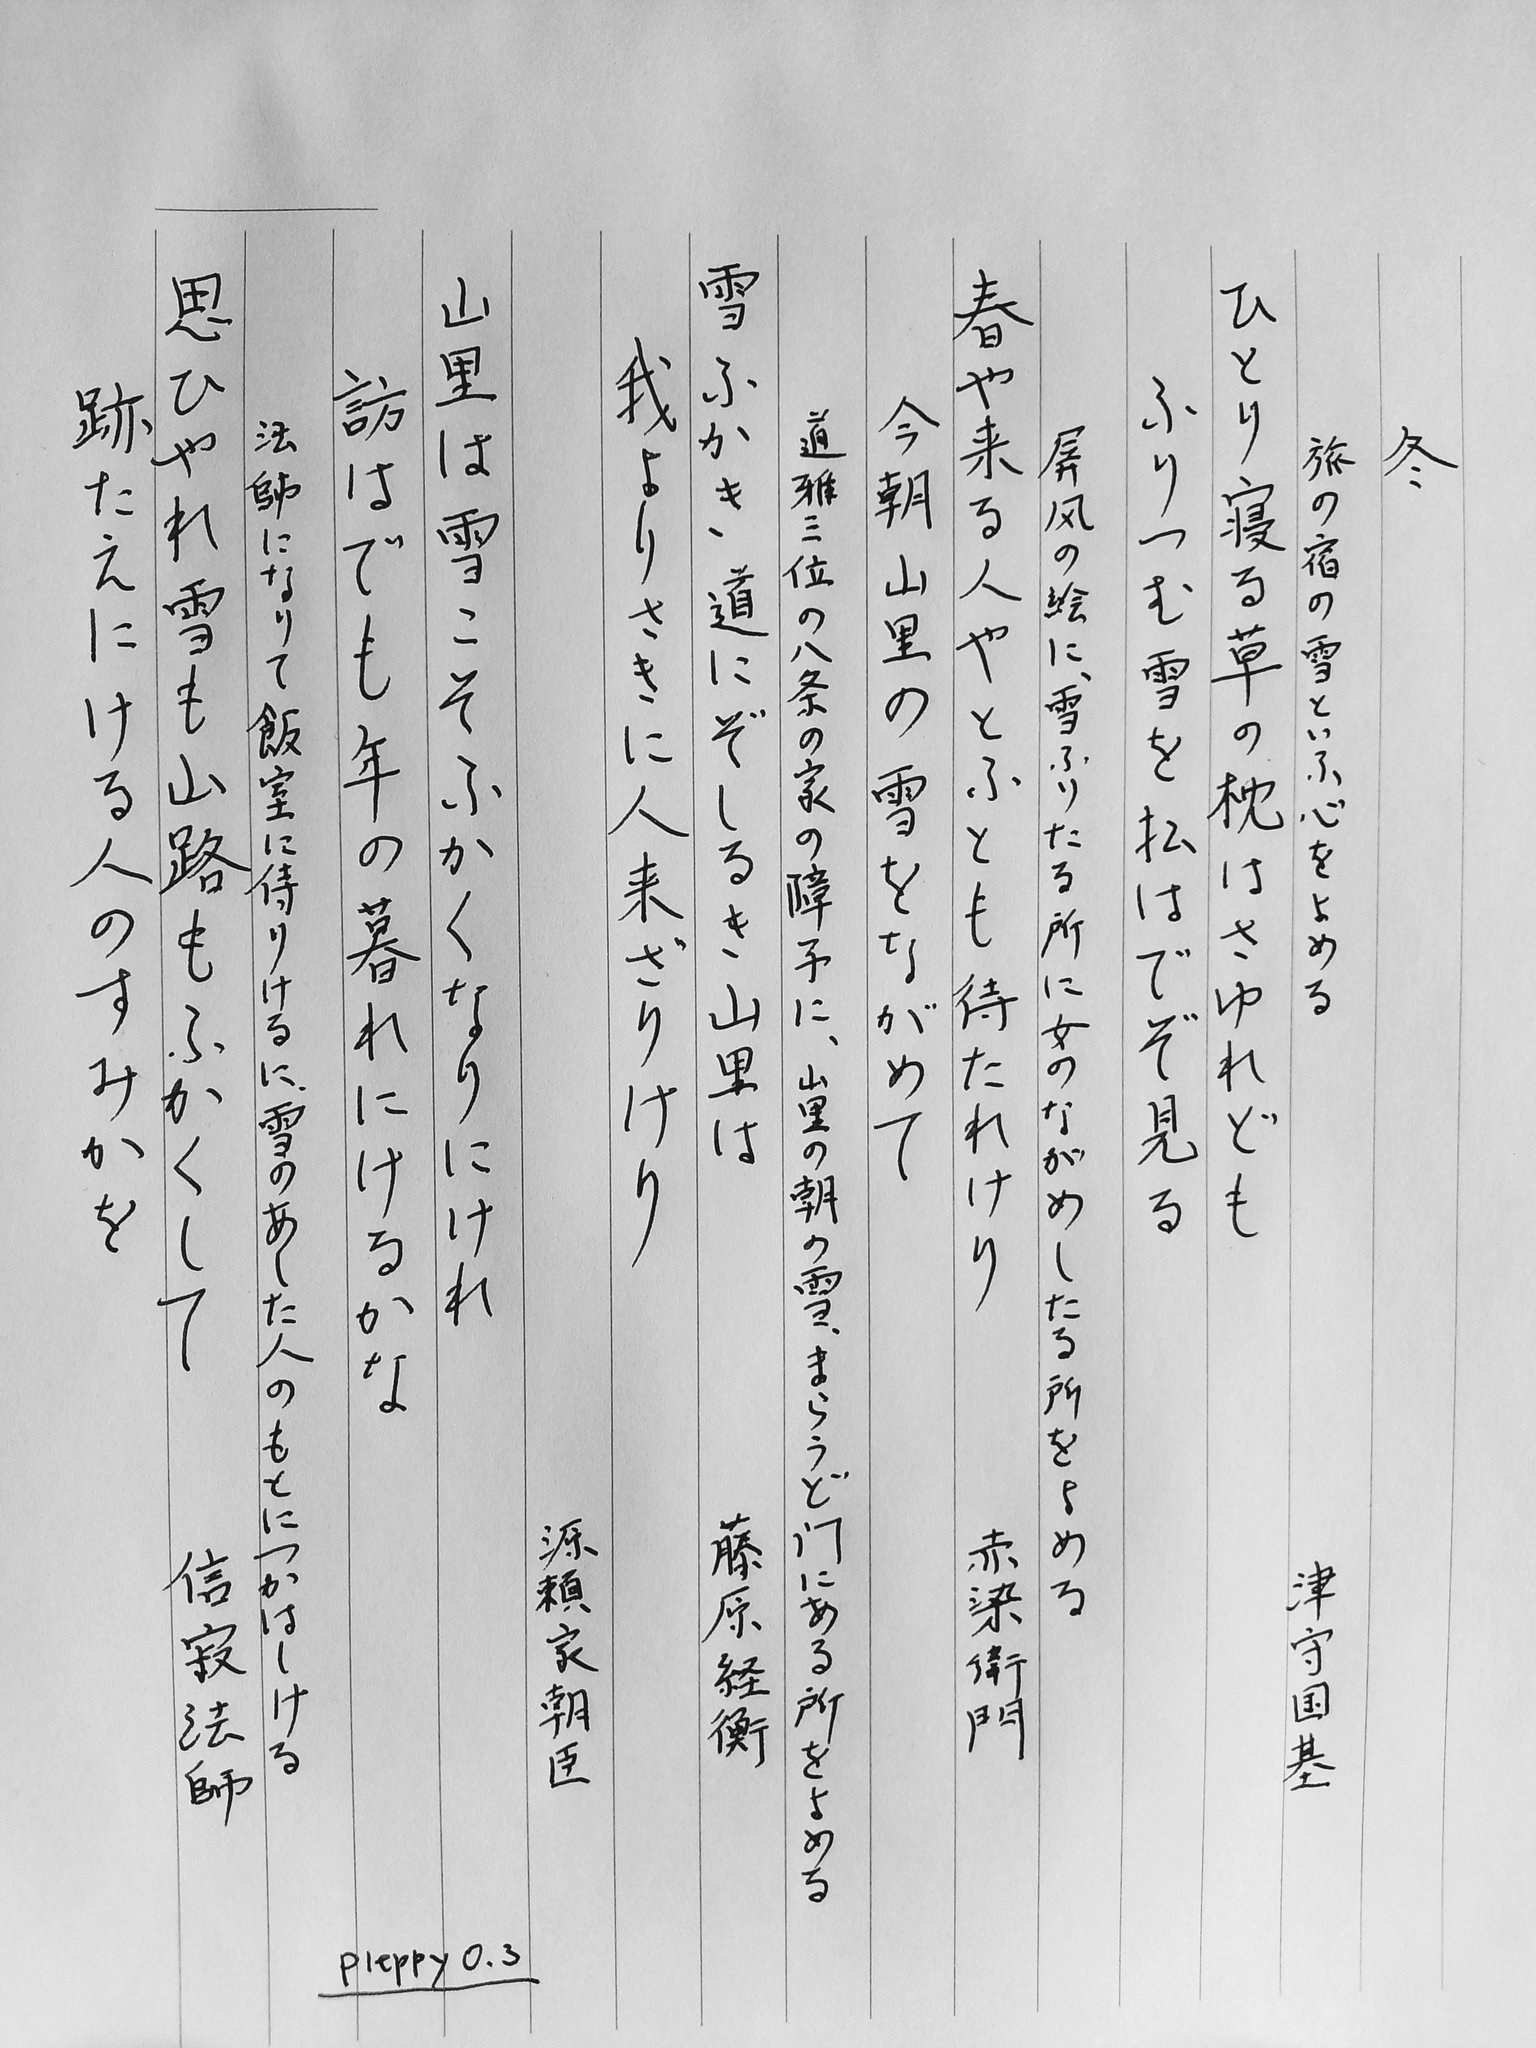 冬
旅の宿の雪といふ心をよめる
津守国基
ひとり寝る草の枕はさゆれども
ふりつむ雪を払はでぞ見る
屏風の絵に、雪ふりたる所に女のながめしたる所をよめる
赤染衛門
春や来る人やとふとも待たれけり
今朝山里の雪をながめて
道雅三位の八条の家の障子に、山里の朝の雪、まらうど門にある所をよめる
藤原経衡
雪ふかき道にぞしるき山里は
我よりさきに人来ざりけり
源頼家朝臣
山里は雪こそふかくなりにけれ
訪はでも年の暮れにけるかな
法師になりて飯室に侍りけるに、雪のあした人のもとにつかはしける
信寂法師
思ひやれ雪も山路もふかくして
跡たえにける人のすみかを
pleppy 0.3